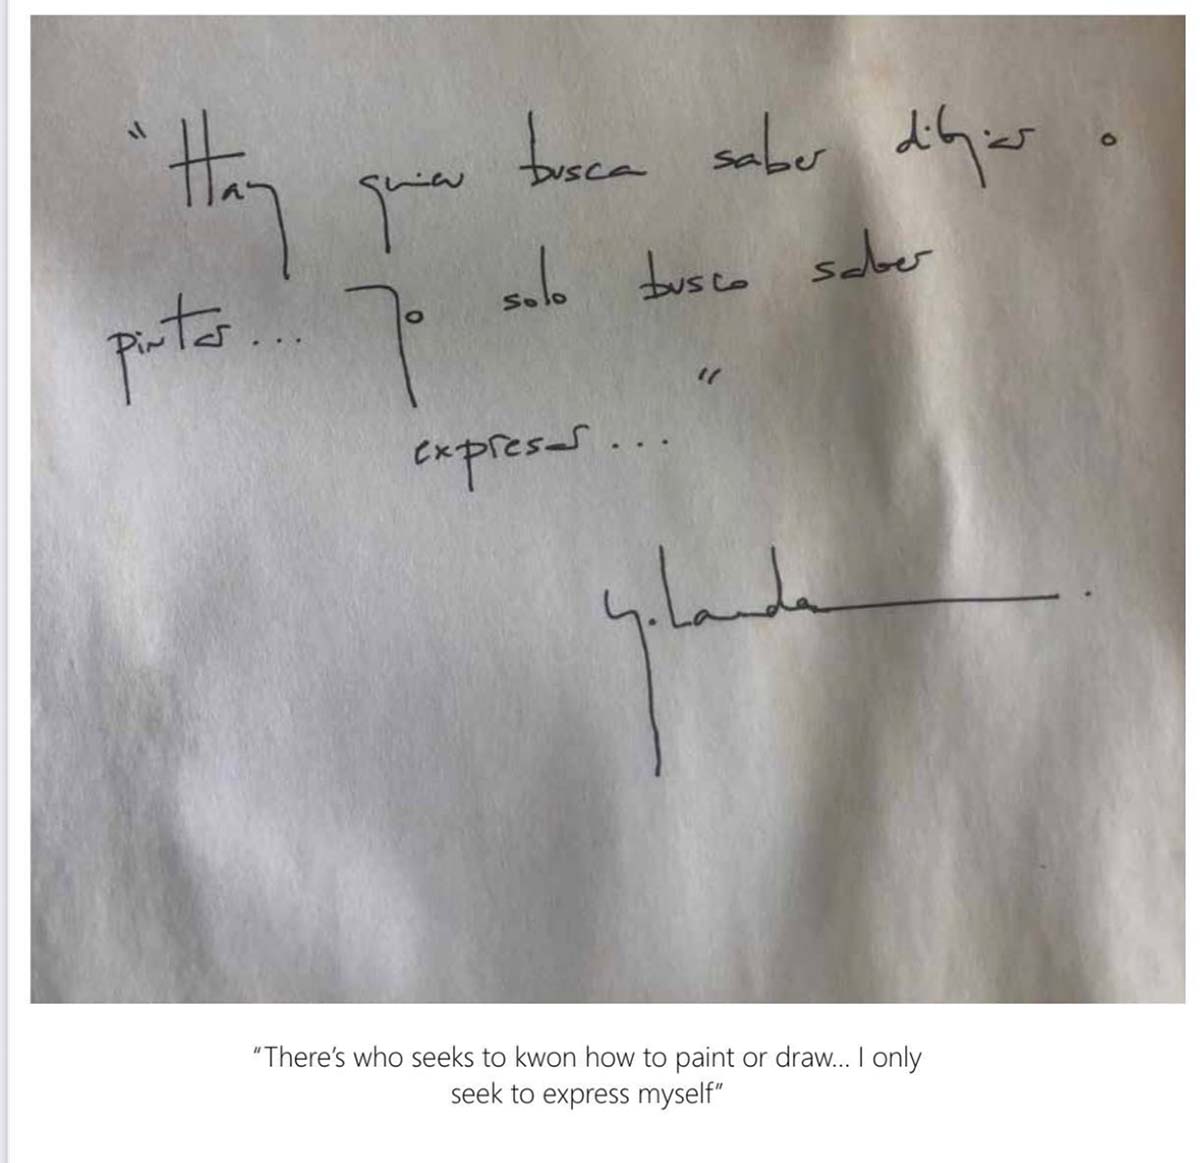 "Hay quien busca saber dibujar o
pintar... Yo solo busco saber
expresar..."
Y. Landa
"There's who seeks to kwon how to paint or draw... I only
seek to express myself"